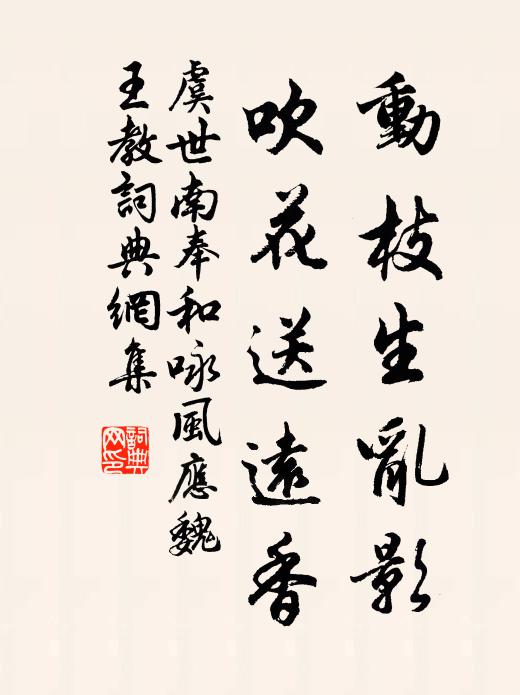 動枝生亂影
吹花送遠香
虞世南奉和咏風應魏
王教詞典網集
詞典
网印